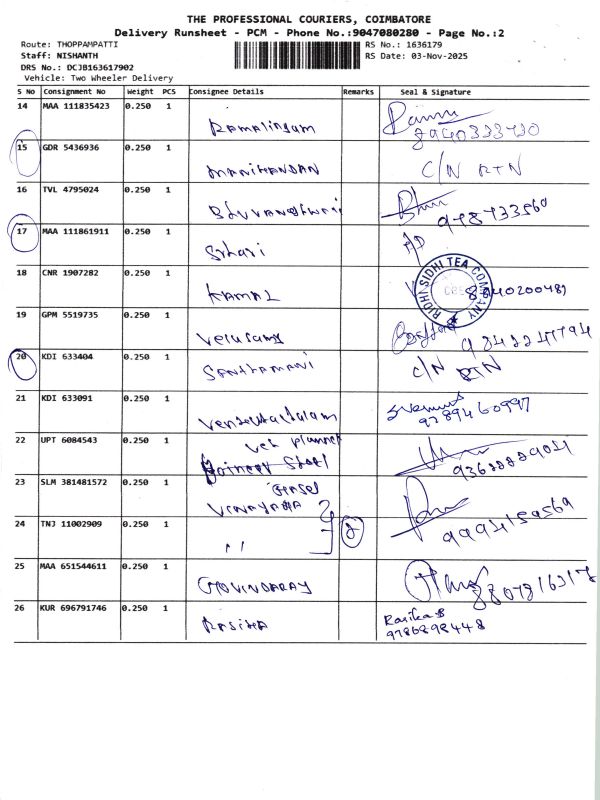 THE PROFESSIONAL COURIERS, COIMBATORE
Delivery Runsheet - PCM - Phone No.:9047080280 - Page No.:2
Route: THOPPAMPATTI RS No.: 1636179
Staff: NISHANTH RS Date: 03-Nov-2025
DRS No.: DCJB163617902
Vehicle: Two Wheeler Delivery
S No Consignment No Weight PCS Consignee Details Remarks Seal & Signature
14 MAA 111835423 0.250 1
Ramalingam
15 GDR 5436936 0.250 1 C/N RTN
MANIKANDAN
16 TVL 4795024 0.250 1
17 MAA 111861911 0.250 1
Srhari
18 CNR 1907282 0.250 1 RIDHI SIDHI TEA COMPANY
KAMAL
19 GPM 5519735 0.250 1
Velusamy
20 KDI 633404 0.250 1 C/N RTN
SENTHAMANI
21 KDI 633091 0.250 1 9789460997
22 UPT 6084543 0.250 1
23 SLM 381481572 0.250 1
VINAYAGA
24 TNJ 11002909 0.250 1 2
"
25 MAA 651544611 0.250 1
GOVINDARAJ
26 KUR 696791746 0.250 1 Rasika S
RASIKA 9786898448